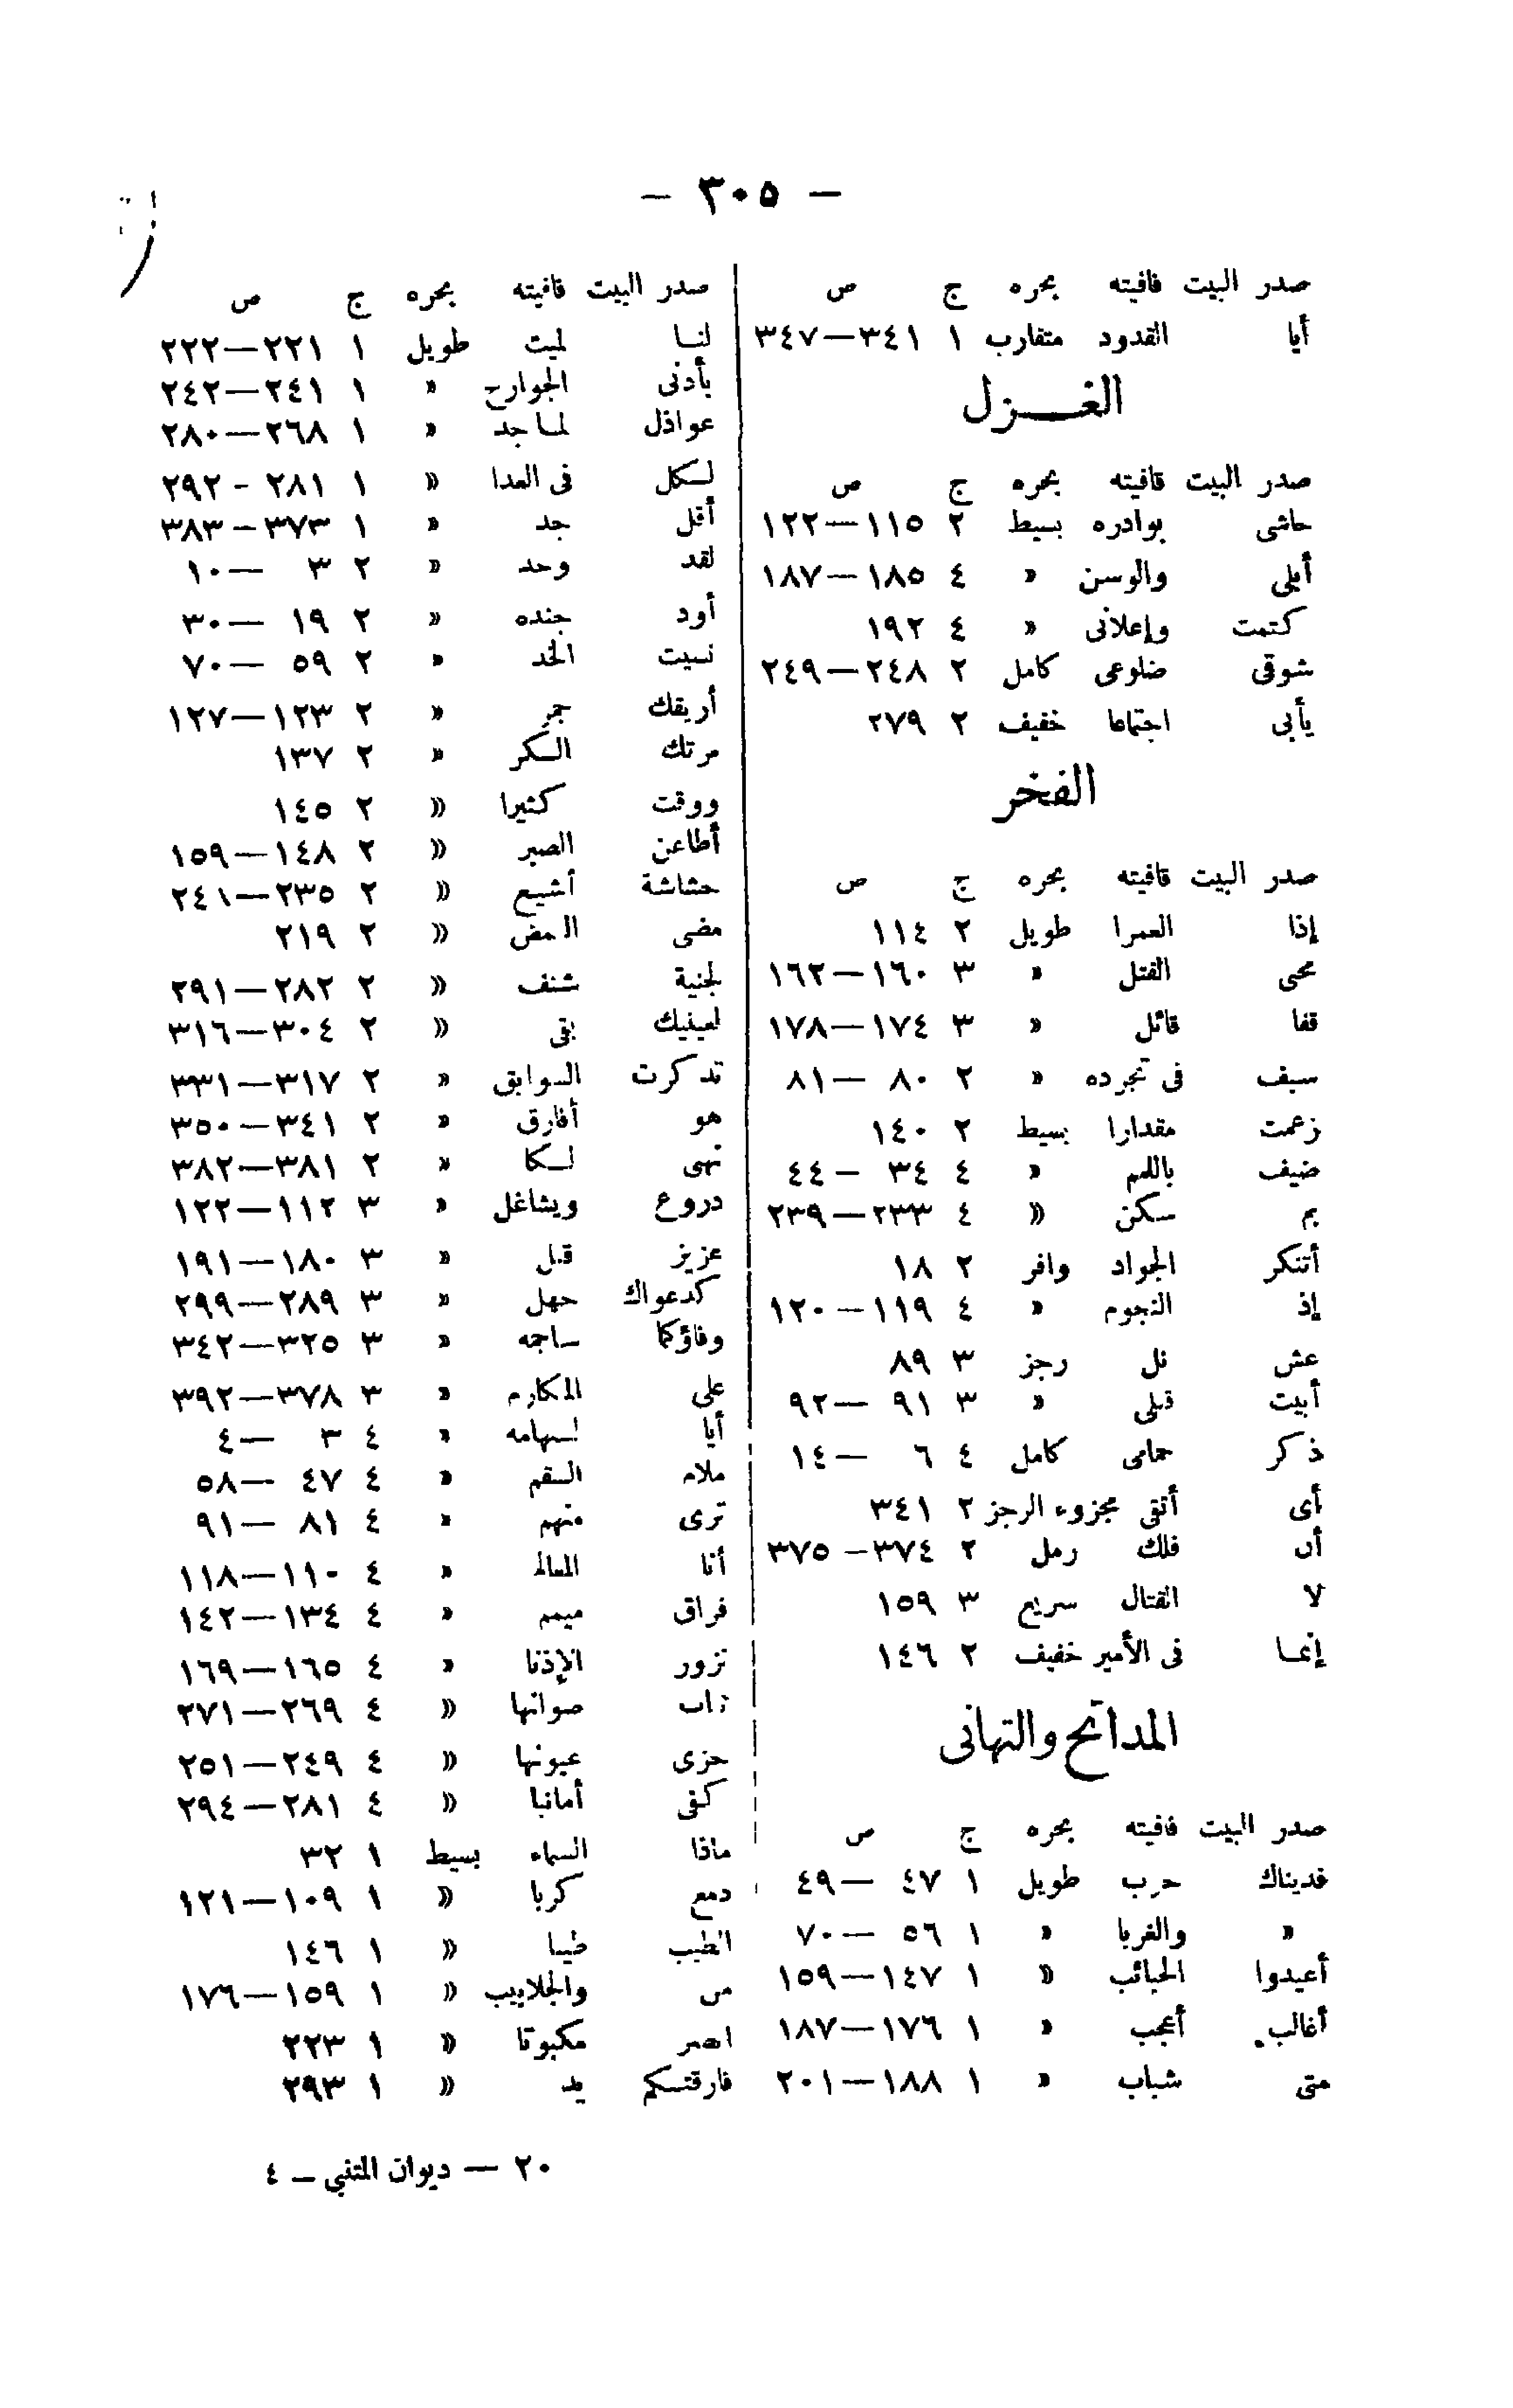 — ٣٠٥ —
صدر البيت قافيته بحره ج ص
أيا القدود متقارب ١ ٣٤١—٣٤٧
الغـــزل
صدر البيت قافيته بحره ج ص
حاشى بوادره بسيط ٢ ١١٥—١٢٢
أبلى والوسن « ٤ ١٨٥—١٨٧
كتمت وإعلانى « ٤ ١٩٢
شوقى ضلوعى كامل ٢ ٢٤٨—٢٤٩
يأبى اجتماعا خفيف ٢ ٢٧٩
الفخر
صدر البيت قافيته بحره ج ص
إذا العمرا طويل ٢ ١١٤
محى القتل « ٣ ١٦٠—١٦٢
قفا قائل « ٣ ١٧٤—١٧٨
سيف فى تجرده « ٢ ٨٠ —٨١
زعمت مقدارا بسيط ٢ ١٤٠
ضيف باللمم « ٤ ٣٤ — ٤٤
بم سكن « ٤ ٢٣٣—٢٣٩
أتنكر الجواد وافر ٢ ١٨
إذ النجوم « ٤ ١١٩—١٢٠
عش نل رجز ٣ ٨٩
أبيت قبلى « ٣ ٩١ —٩٢
ذكر حمامى كامل ٤ ٦ —١٤
أى أتقى مجزوء الرجز ٢ ٣٤١
أن فلك رمل ٢ ٣٧٤—٣٧٥
لا القتال سريع ٣ ١٥٩
إنمـا فى الأمير خفيف ٢ ١٤٦
المدائح والتهانى
صدر البيت قافيته بحره ج ص
فديناك حرب طويل ١ ٤٧ —٤٩
« والغربا « ١ ٥٦ —٧٠
أعيدوا الحبائب « ١ ١٤٧—١٥٩
أغالب أعجب « ١ ١٧٦—١٨٧
متى شباب « ١ ١٨٨—٢٠١
صدر البيت قافيته بحره ج ص
لنـا لميت طويل ١ ٢٢١—٢٢٢
بأدنى الجوارح « ١ ٢٤١—٢٤٢
عواذل لمـاجد « ١ ٢٦٨—٢٨٠
لـكل فى العدا « ١ ٢٨١ - ٢٩٢
أقل جد « ١ ٣٧٣—٣٨٣
لقد وحد « ٢ ٣ —١٠
أود جنده « ٢ ١٩ —٣٠
نسيت الخد « ٢ ٥٩ —٧٠
أريقك جمر « ٢ ١٢٣—١٢٧
مرتك السكر « ٢ ١٣٧
ووقت كثيرا « ٢ ١٤٥
أطاعن الصبر « ٢ ١٤٨—١٥٩
حشاشة أشيع « ٢ ٢٣٥—٢٤١
مضى الغمض « ٢ ٢١٩
لجنية شنف « ٢ ٢٨٢—٢٩١
لعينيك بقى « ٢ ٣٠٤—٣١٦
تذكرت السوابق « ٢ ٣١٧—٣٣١
هو أفارق « ٢ ٣٤١—٣٥٠
نهى لـكا « ٢ ٣٨١—٣٨٢
دروع ويشاغل « ٣ ١١٢—١٢٢
عزيز قبل « ٣ ١٨٠—١٩١
كدعواك جهل « ٣ ٢٨٩—٢٩٩
وفاؤكما ساجمه « ٣ ٣٢٥—٣٤٢
على المكارم « ٣ ٣٧٨—٣٩٢
أيا لسهامه « ٤ ٣ —٤
ملام السقم « ٤ ٤٧ —٥٨
ترى منهم « ٤ ٨١ —٩١
أنا المعالم « ٤ ١١٠—١١٨
فراق ميمم « ٤ ١٣٤—١٤٢
تزور الإذنا « ٤ ١٦٥—١٦٩
ثياب صوانها « ٤ ٢٦٩—٢٧١
جزى عيونها « ٤ ٢٤٩—٢٥١
كفى أمانيا « ٤ ٢٨١—٢٩٤
ماذا السماء بسيط ١ ٣٢
دمع كربا « ١ ١٠٩—١٢١
الطيب طيبا « ١ ١٤٦
من والجلابيب « ١ ١٥٩—١٧٦
انصر مكبوتا « ١ ٢٢٣
فارقتـكم يد « ١ ٢٩٣
٢٠ — ديوان المتنبي — ٤